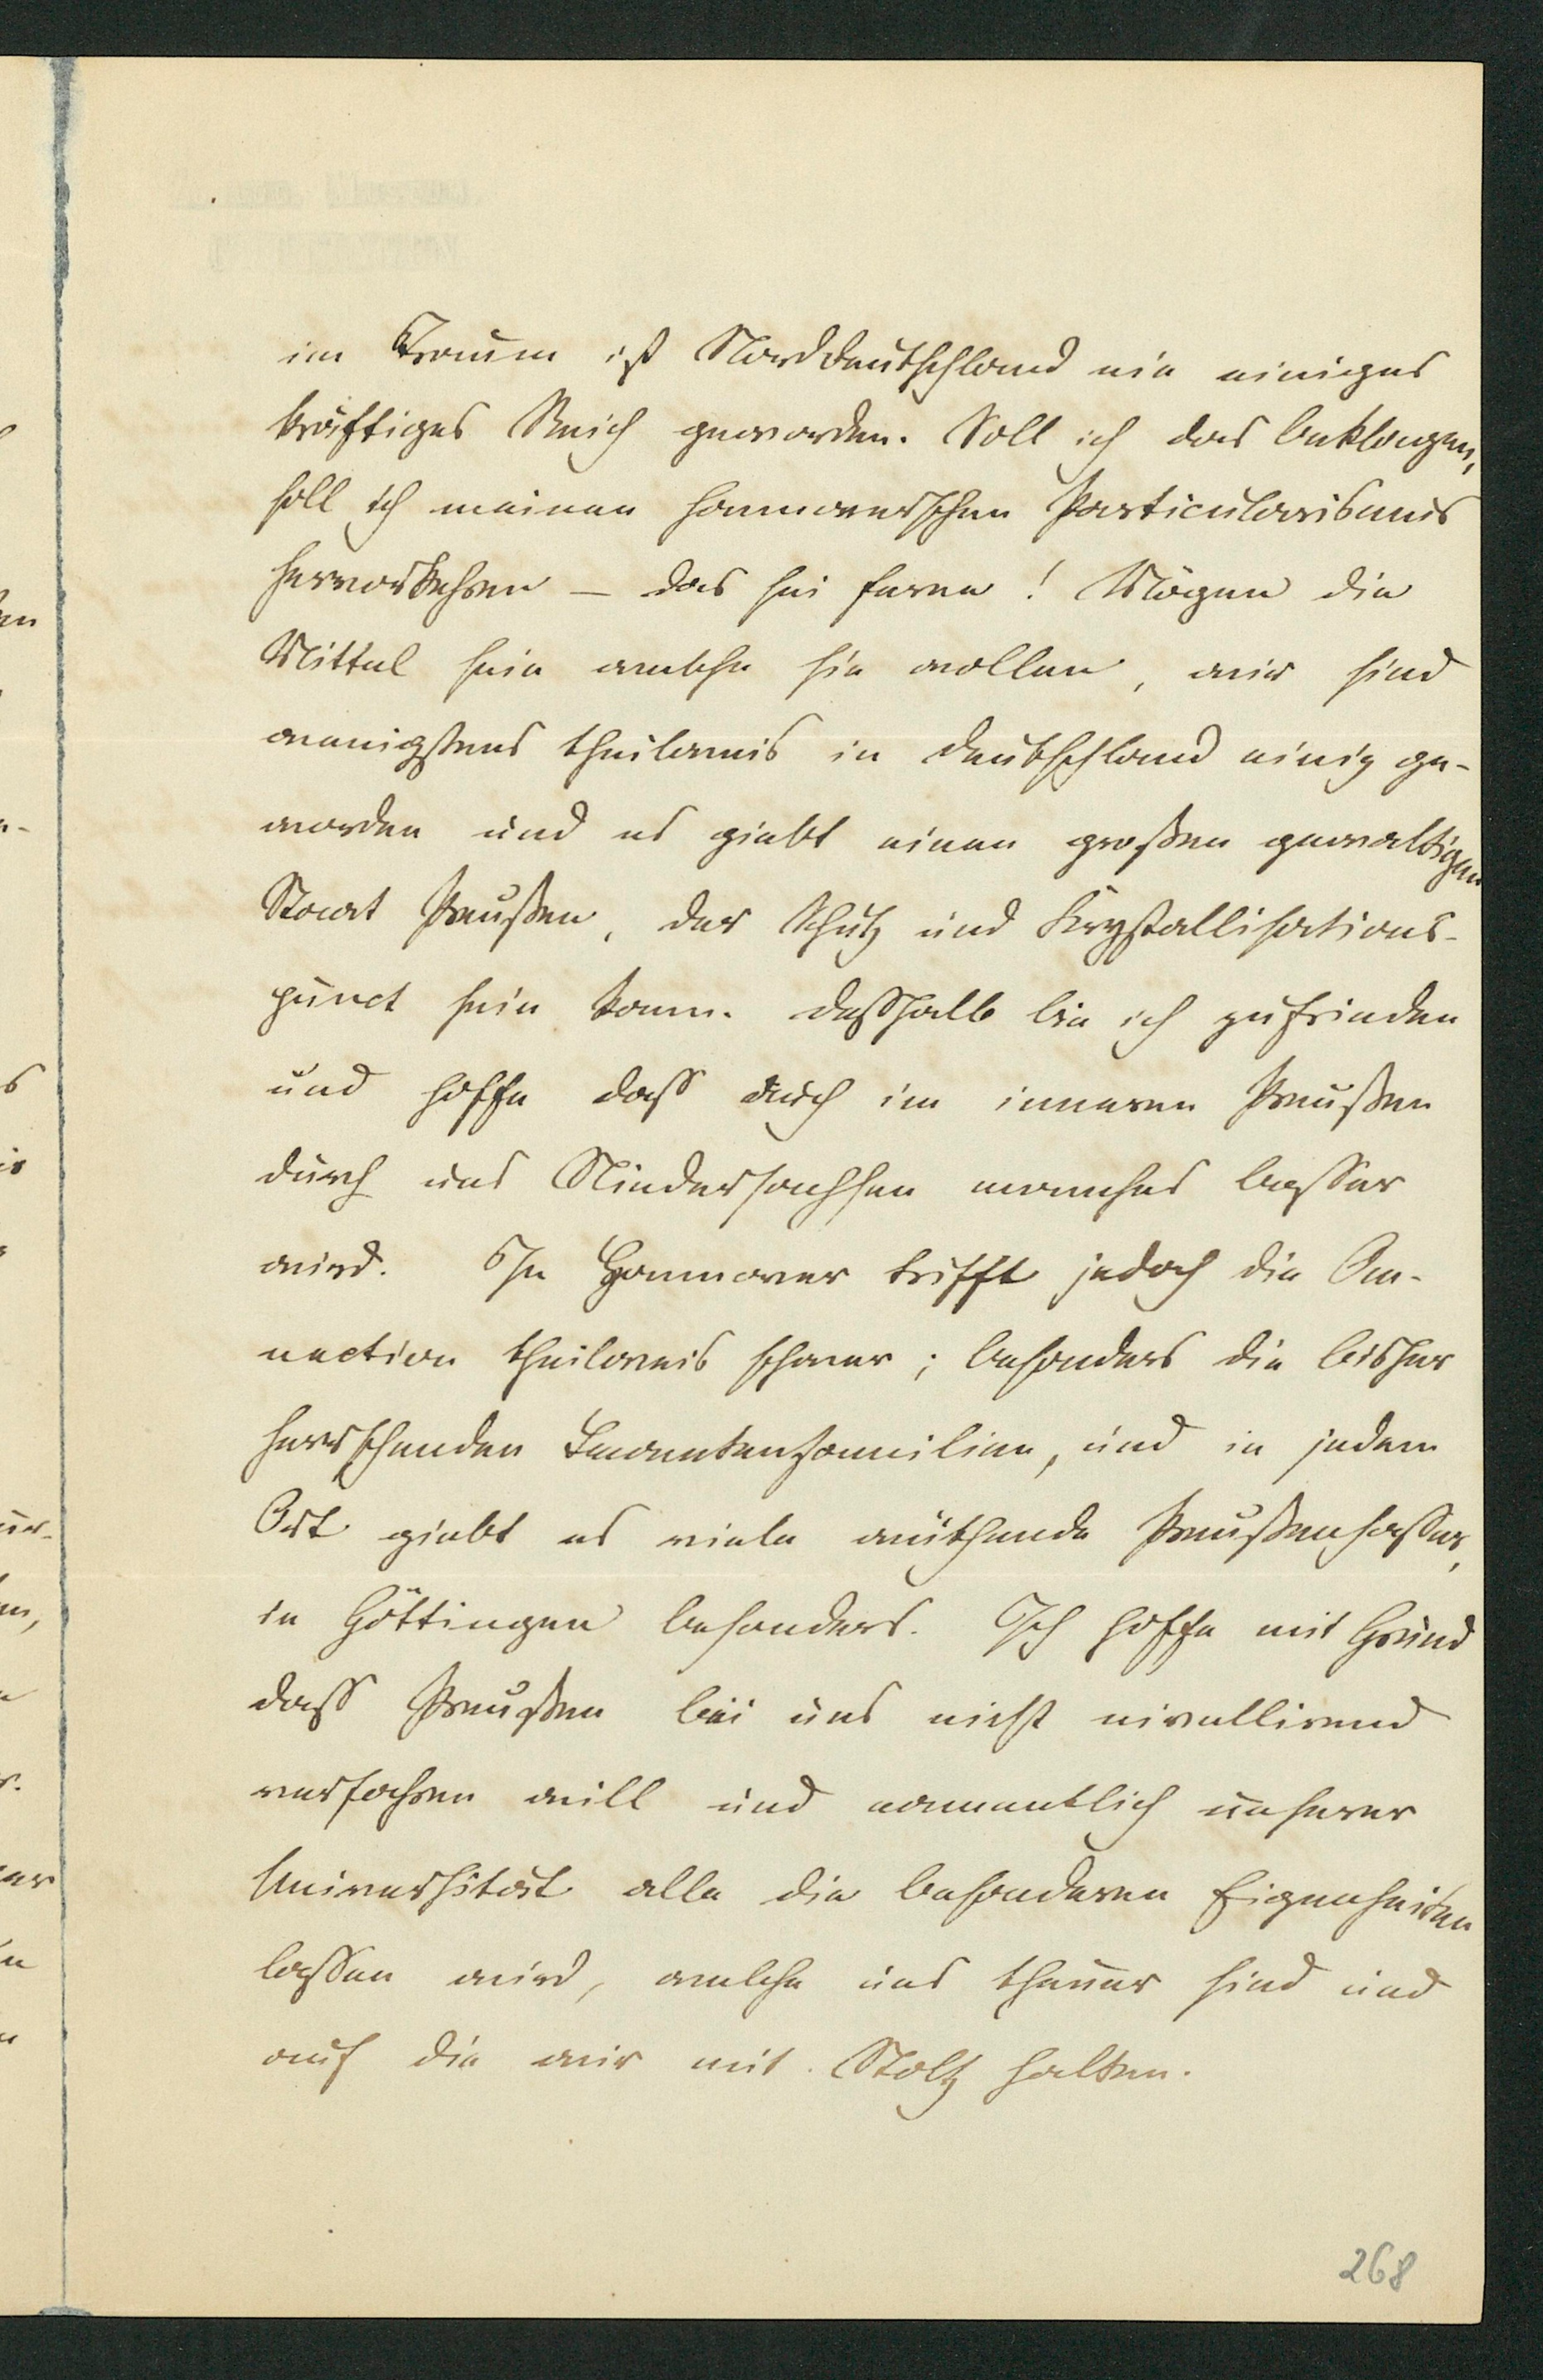 im Traum ist Norddeutschland ein einiges
kräftiges Reich geworden. Soll ich das beklagen,
soll ich meinen hannoverschen Particularismus
hervorkehren – das sei ferne! Mögen die
Mittel sein welche sie wollen, wir sind
wenigstens theilweis in Deutschland einig ge-
worden und es giebt einen großen gewaltigen
Staat Preußen, der Schutz und Krystallisations-
punct sein kann. Deßhalb bin ich zufrieden
und hoffe daß auch im inneren Preußen
durch uns Niedersachsen manches besser
wird. In Hannover trifft jedoch die An-
nection theilweis schwer; besonders die bisher
herrschenden Beamtenfamilien, und in jedem
Ort giebt es viele wüthende Preußenhasser,
in Göttingen besonders. Ich hoffe mit Grund
daß Preußen bei uns nicht nivellirend
verfahren will und namentlich unserer
Universität alle die besonderen Eigenheiten
lassen wird, welche uns theuer sind und
auf die wir mit Stolz halten.
268